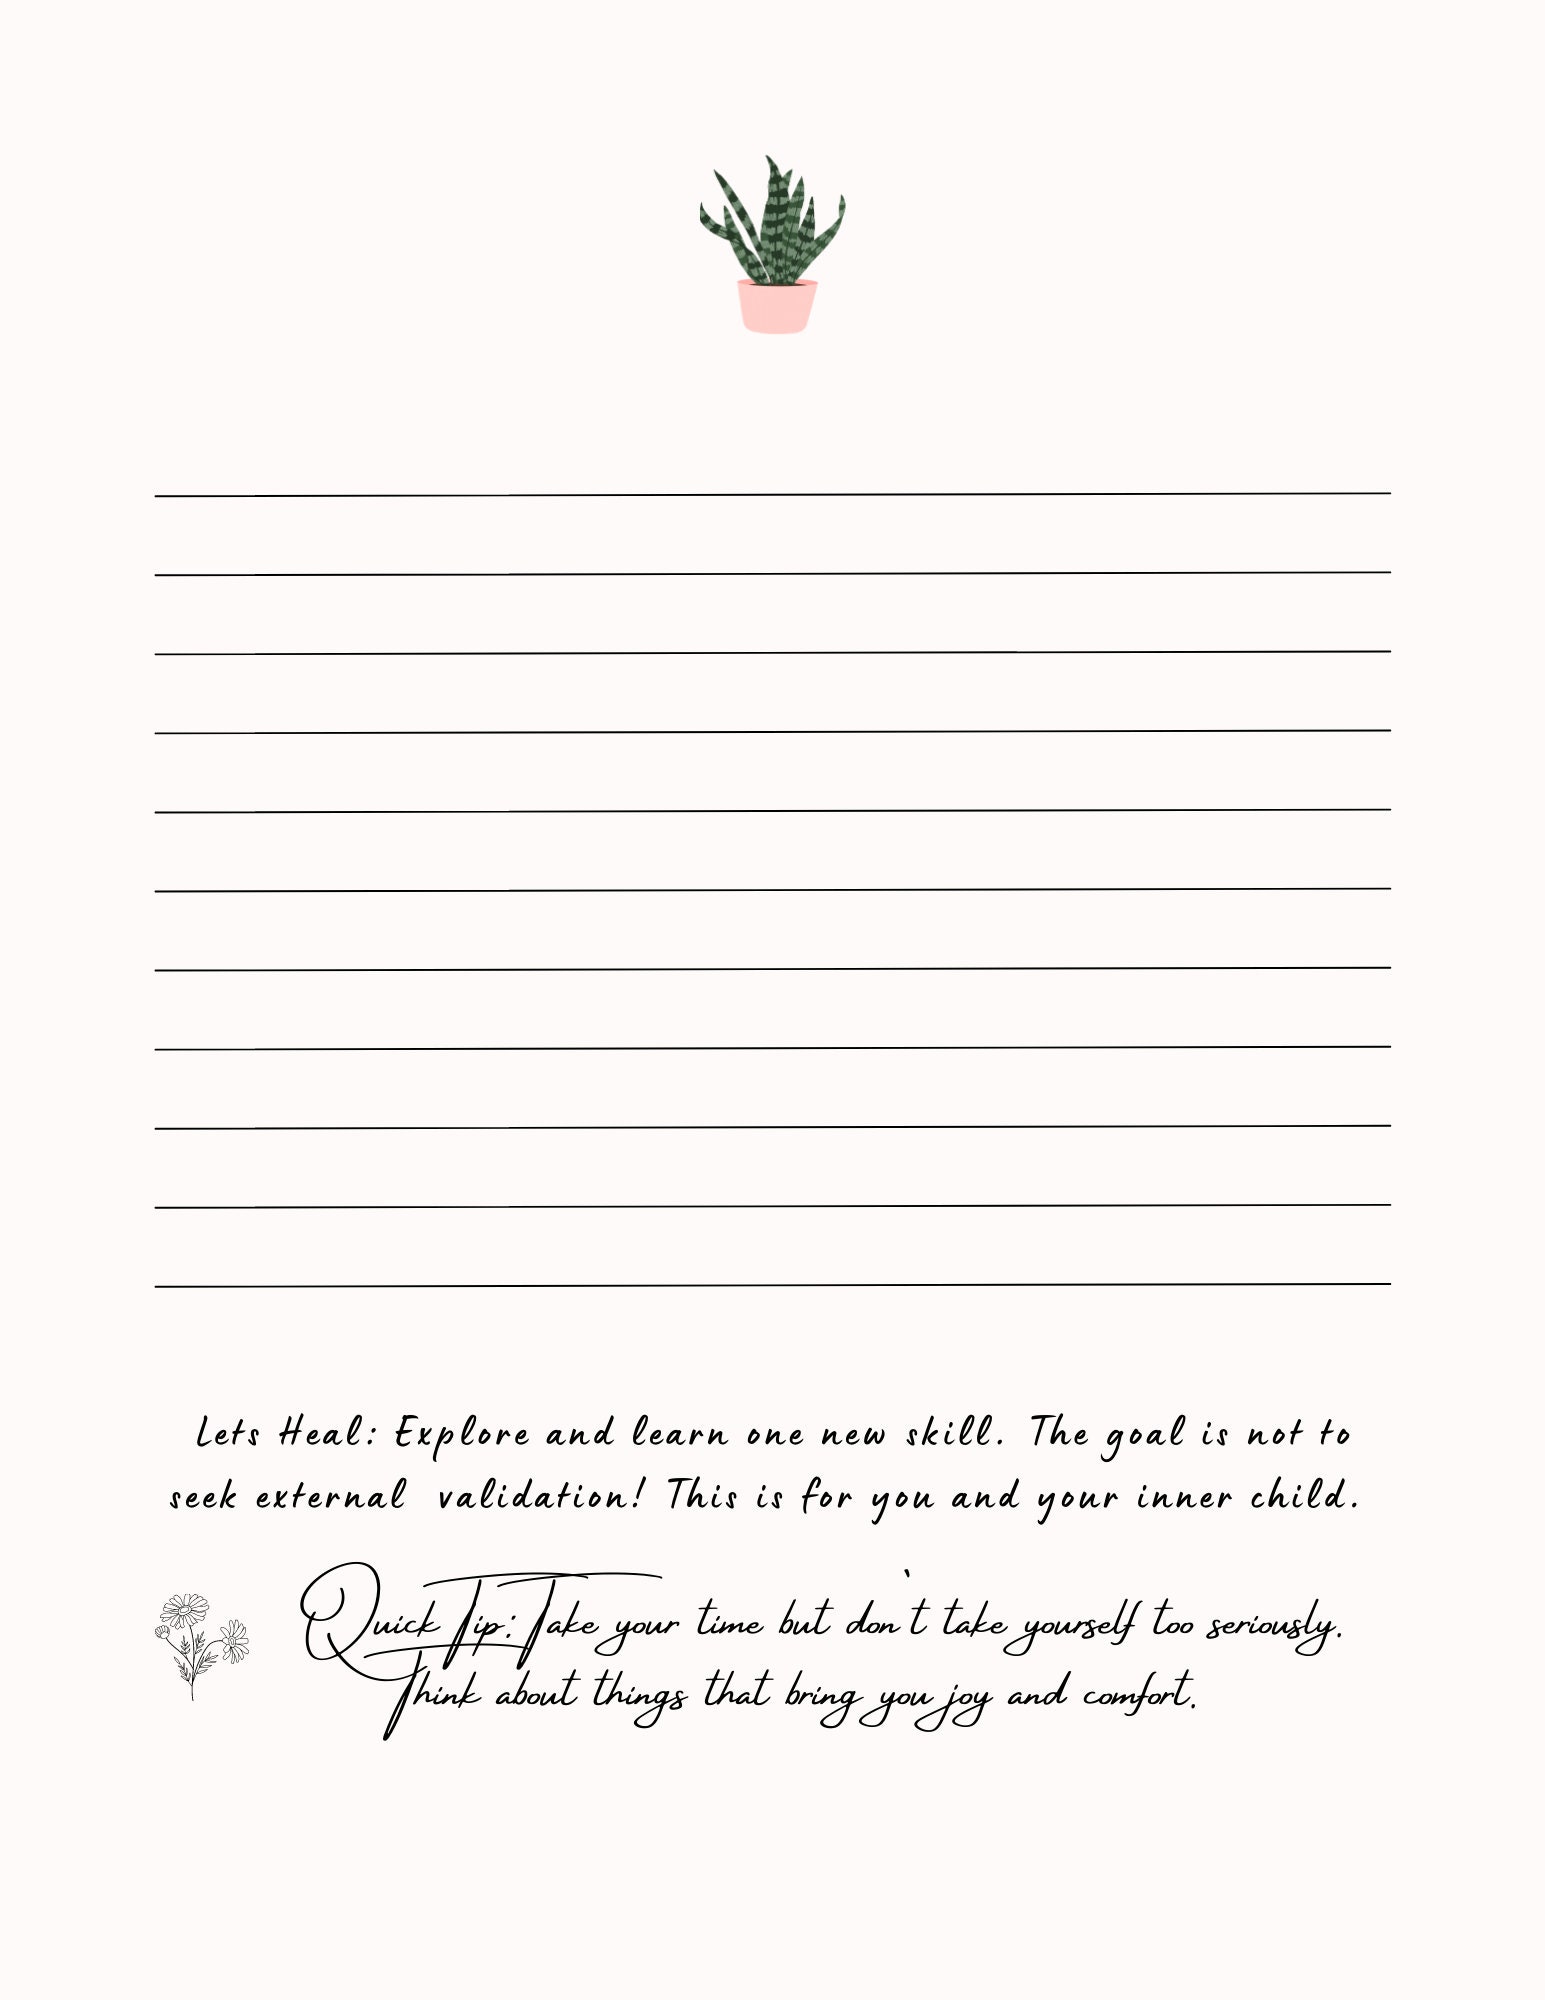 Lets Heal: Explore and learn one new skill. The goal is not to
seek external validation! This is for you and your inner child.
Quick Tip: Take your time but don`t take yourself too seriously.
Think about things that bring you joy and comfort.